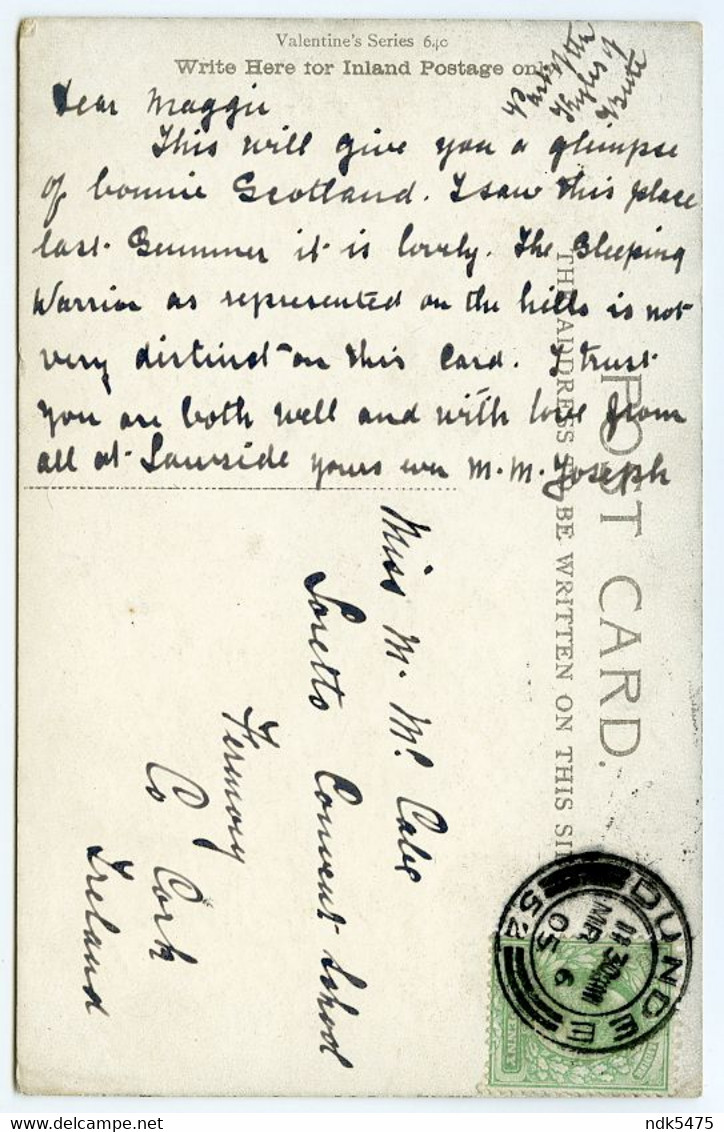 Valentine's Series 640
Write Here for Inland Postage only
Part of the
Kyles of
Bute
Dear Maggie
This will give you a glimpse
of bonnie Scotland. I saw this place
last Summer it is lovely. The Sleeping
Warrior as represented on the hills is not
very distinct on this Card. I trust
you are both well and with love from
all at Lawside yours ever M. M. Joseph
POST CARD.
THE ADDRESS TO BE WRITTEN ON THIS SIDE
Miss M. Mc Cabe
Loretto Convent School
Fermoy
Co Cork
Ireland
DUNDEE
11 30AM
MR 6
05
52
ndk5475